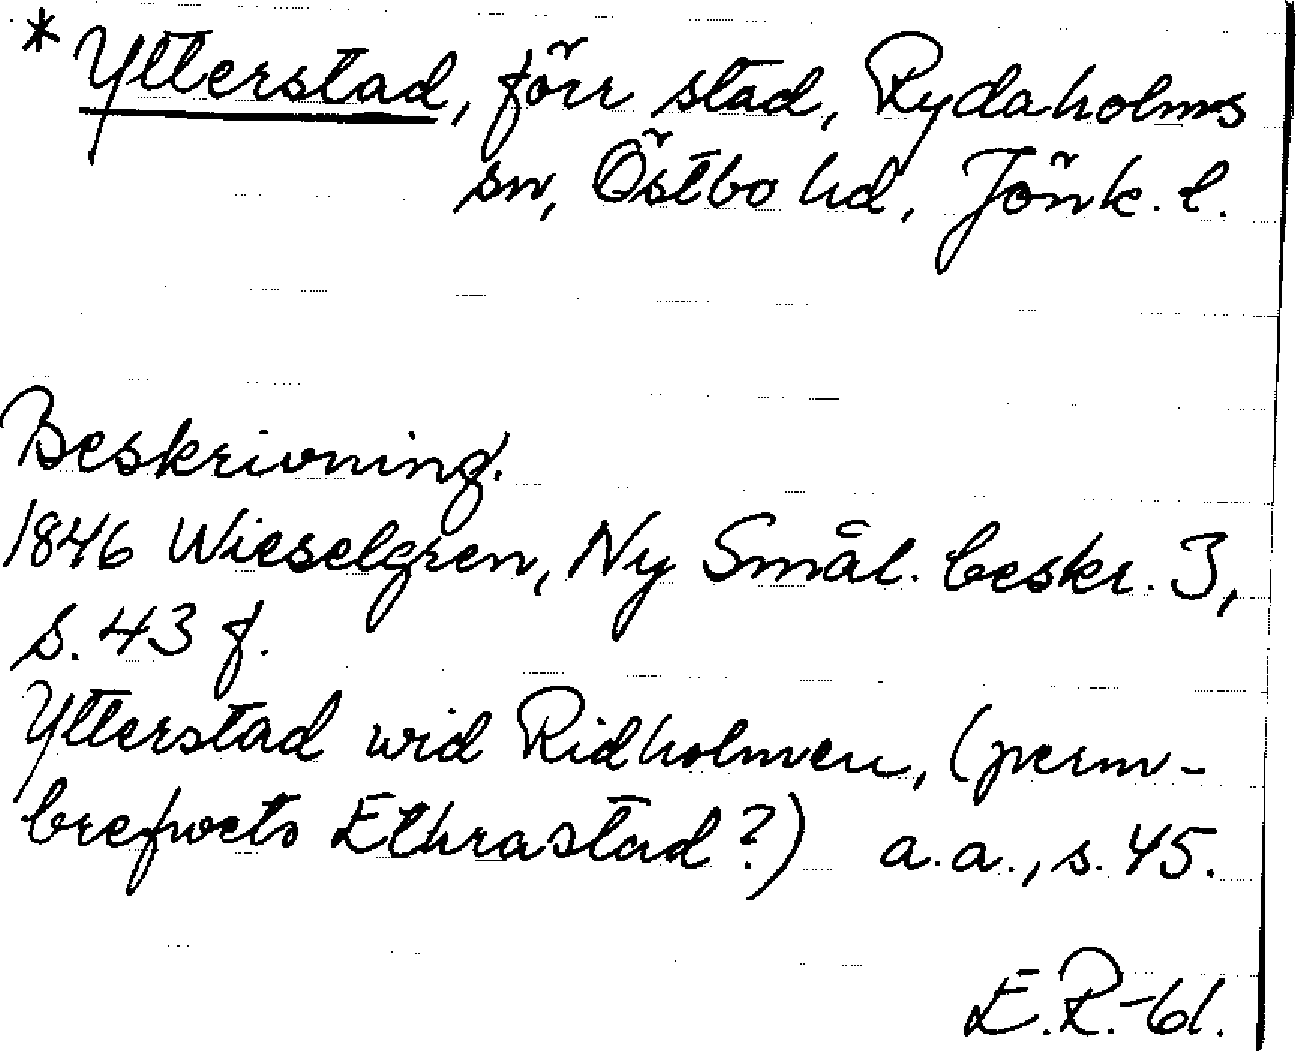 * Ytterstad, förr stad, Rydaholms
sn, Östbo hd, Jönk. l.
Beskrivning.
1846 Wieselgren, Ny Smål. beskr. 3,
s. 43 f.
Ytterstad wid Ridholmen, (perm-
brefwets Ethrastad?) a.a., s. 45.
E.R.-61.